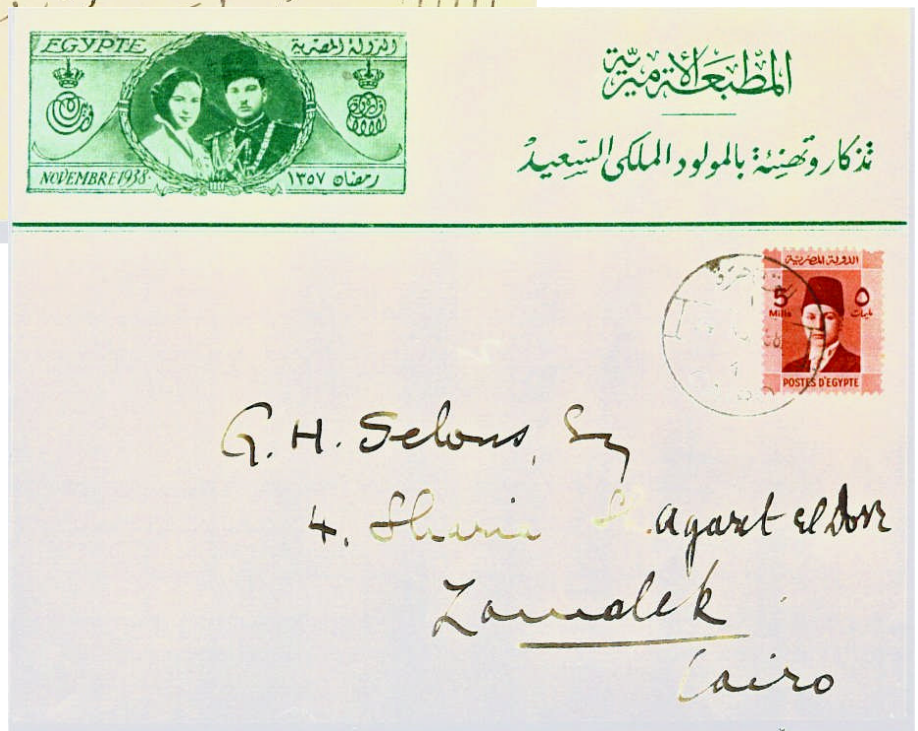 EGYPTE الدولة المصرية
NOVEMBRE 1938 رمضان ١٣٥٧
المطبعة الأميرية
تذكار وتهنئة بالمولود الملكى السعيد
الدولة المصرية
5 ٥
Mills مليمات
POSTES D'EGYPTE
G. H. Selous, Esq
4, Sharia Sh. agaret el Dorr
Zamalek
Cairo